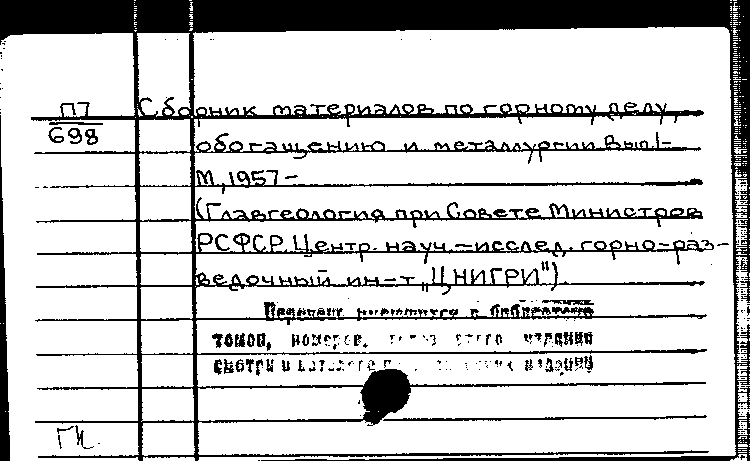 П7
698
Сборник материалов по горному делу,
обогащению и металлургии Вып.1-
М, 1957 -
(Главгеология при Совете Министров
РСФСР. Центр. науч.-исслед. горно-раз-
ведочный ин-т „ЦНИГРИ").
Перечень имеющихся в библиотеке
томов, номеров, этого издания
смотри в каталоге изданий